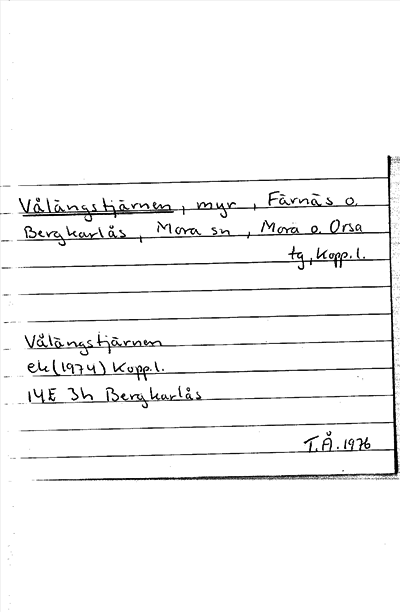 Vålängstjärnen, myr, Färnäs o.
Bergkarlås, Mora sn, Mora o. Orsa
tg, Kopp.l.
Vålängstjärnen
ek (1974) Kopp.l.
14E 3h Bergkarlås
T.Å. 1976